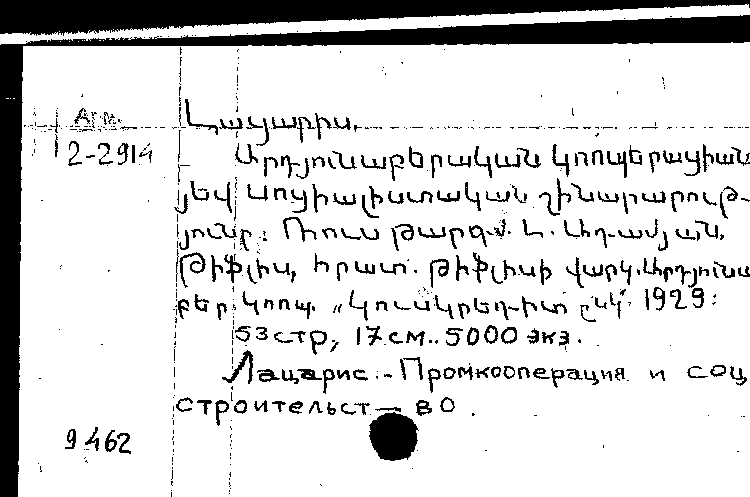 Агм.
Լացարիս,
2-2914
Արդյունաբերական կոոպերացիան
յեվ սոցիալիստական շինարարութ-
յունը. Ռուս թարգմ. Լ.
Թիֆլիս, հրատ. Թիֆլիսի վարկ. Արդյունա
բեր. կոոպ. „Կուսկրեդիտ ընկ. 1929:
53 стр, 17 см.. 5000 экз.
Лацарис.- Промкооперация и соц
строительст— во.
9462